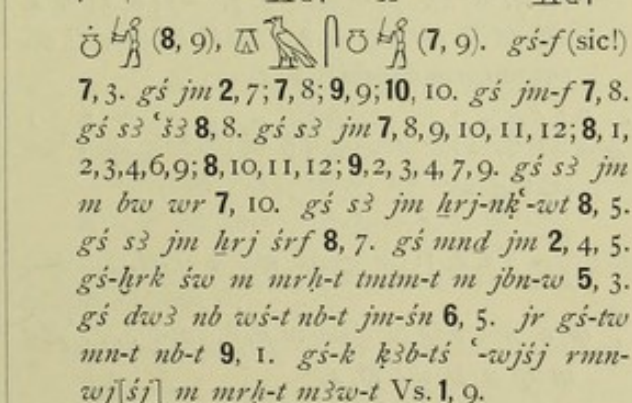 (8, 9), (7, 9). gś-f (sic!)
7, 3. gś jm 2, 7; 7, 8; 9, 9; 10, 10. gś jm-f 7, 8.
gś sꜣ ꜥšꜣ 8, 8. gś sꜣ jm 7, 8, 9, 10, 11, 12; 8, 1,
2, 3, 4, 6, 9; 8, 10, 11, 12; 9, 2, 3, 4, 7, 9. gś sꜣ jm
m bw wr 7, 10. gś sꜣ jm ẖrj-nḳꜥ-wt 8, 5.
gś sꜣ jm ẖrj śrf 8, 7. gś mnd jm 2, 4, 5.
gś-ḫrk św m mrḥ-t tmtm-t m jbn-w 5, 3.
gś dwꜣ nb wś-t nb-t jm-śn 6, 5. jr gś-tw
mn-t nb-t 9, 1. gś-k ḳꜣb-tś ꜥ-wjśj rmn-
wj[śj] m mrḥ-t mꜣw-t Vs. 1, 9.